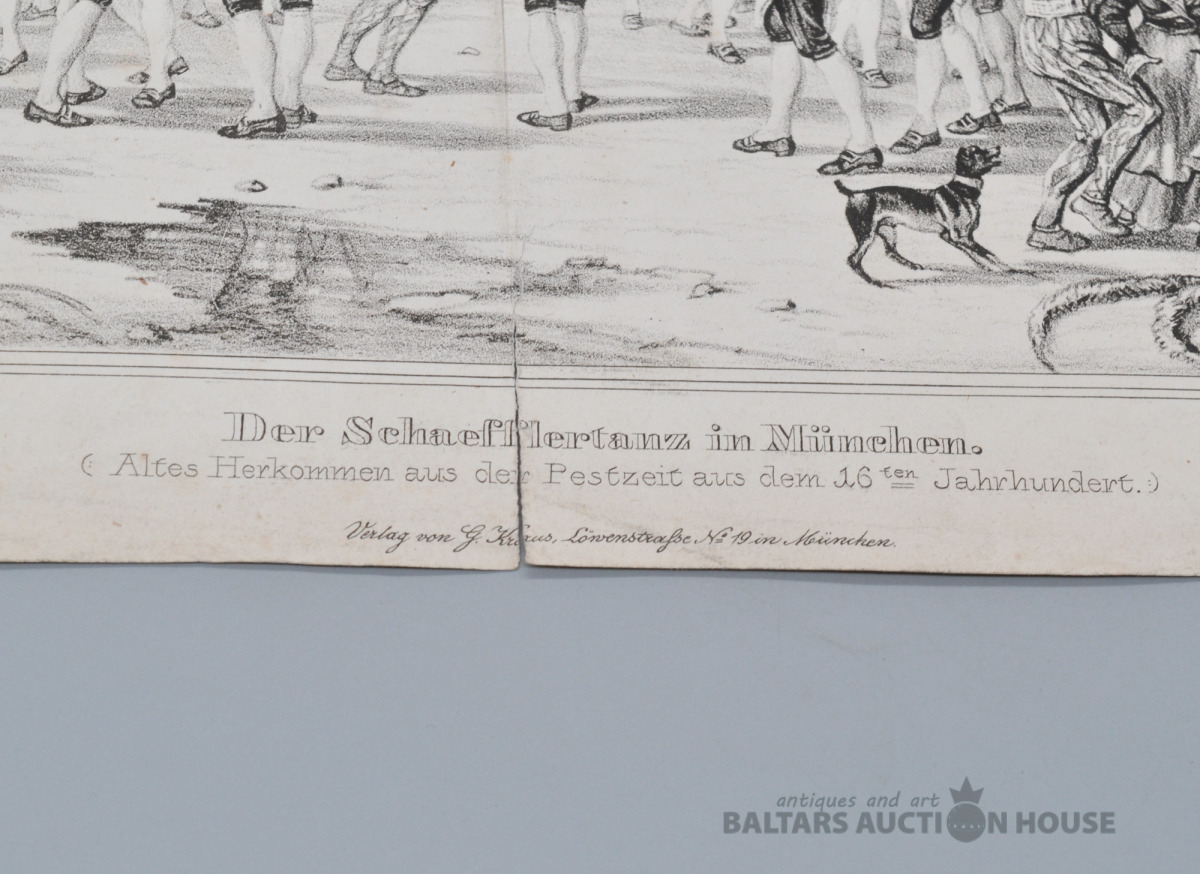 Der Schaefflertanz in München.
(: Altes Herkommen aus der Pestzeit aus dem 16ten Jahrhundert. :)
Verlag von G. Kraus, Löwenstraße No 19 in München.
antiques and art
BALTARS AUCTION HOUSE